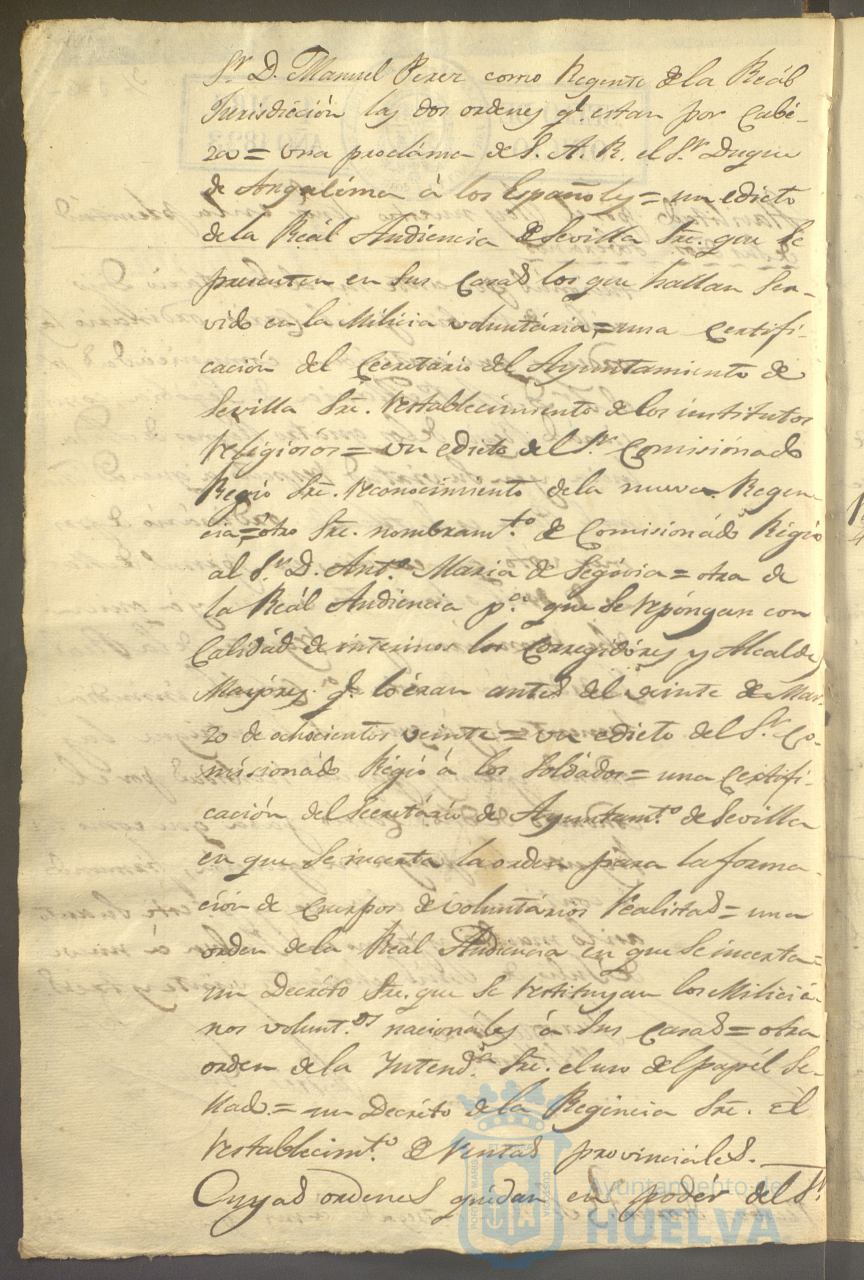 Sr. D. Manuel Perez como Regente de la Reál
Jurisdicción las dos ordenes qe. estan por Cabé-
za = una procláma de S. A. R. el Sr. Duque
de Angulema á los Españoles = un edicto
de la Reál Audiencia de Sevilla Sre. que se
presenten en sus casas los que hallan Ser-
vido en la Milicia voluntária, = una Certifi-
cación del Secretário del Ayuntamiento de
Sevilla Sre. restablecimiento de los institutos
religiosos = un edicto del Sr. Comisionado
Regio Sre. reconocimiento de la nueva Regen-
cia, = ótro Sre. nombramto. de Comisionado Régio
al Sr. D. Anto. Maria de Segóvia = otra de
la Reál Audiencia pa. que se repóngan con
Calidád de interinos los Corregidóres y Alcaldes
Mayóres qe. lo éran antes del veinte de Mar-
zo de ochocientos veinte = un edicto del Sr. Co-
misionado Régio á los Soldádos = una Certifi-
cación del Secretário de Ayuntamto. de Sevilla
en que se incerta la orden para la forma-
ción de Cuerpos de Voluntários Realistas = una
orden de la Reál Audiencia en que se incerta =
un Decréto Sre. que se restituyan los Miliciá-
nos volunts. nacionáles á sus casas = otra
orden de la Yntenda. Sre. el uso del papél Se-
llado. = un Decréto de la Regéncia Sre. él
restablecimto. de Rentas provinciáles.
Cuyas ordenes quédan en poder del Sr.
Ayuntamiento de
HUELVA